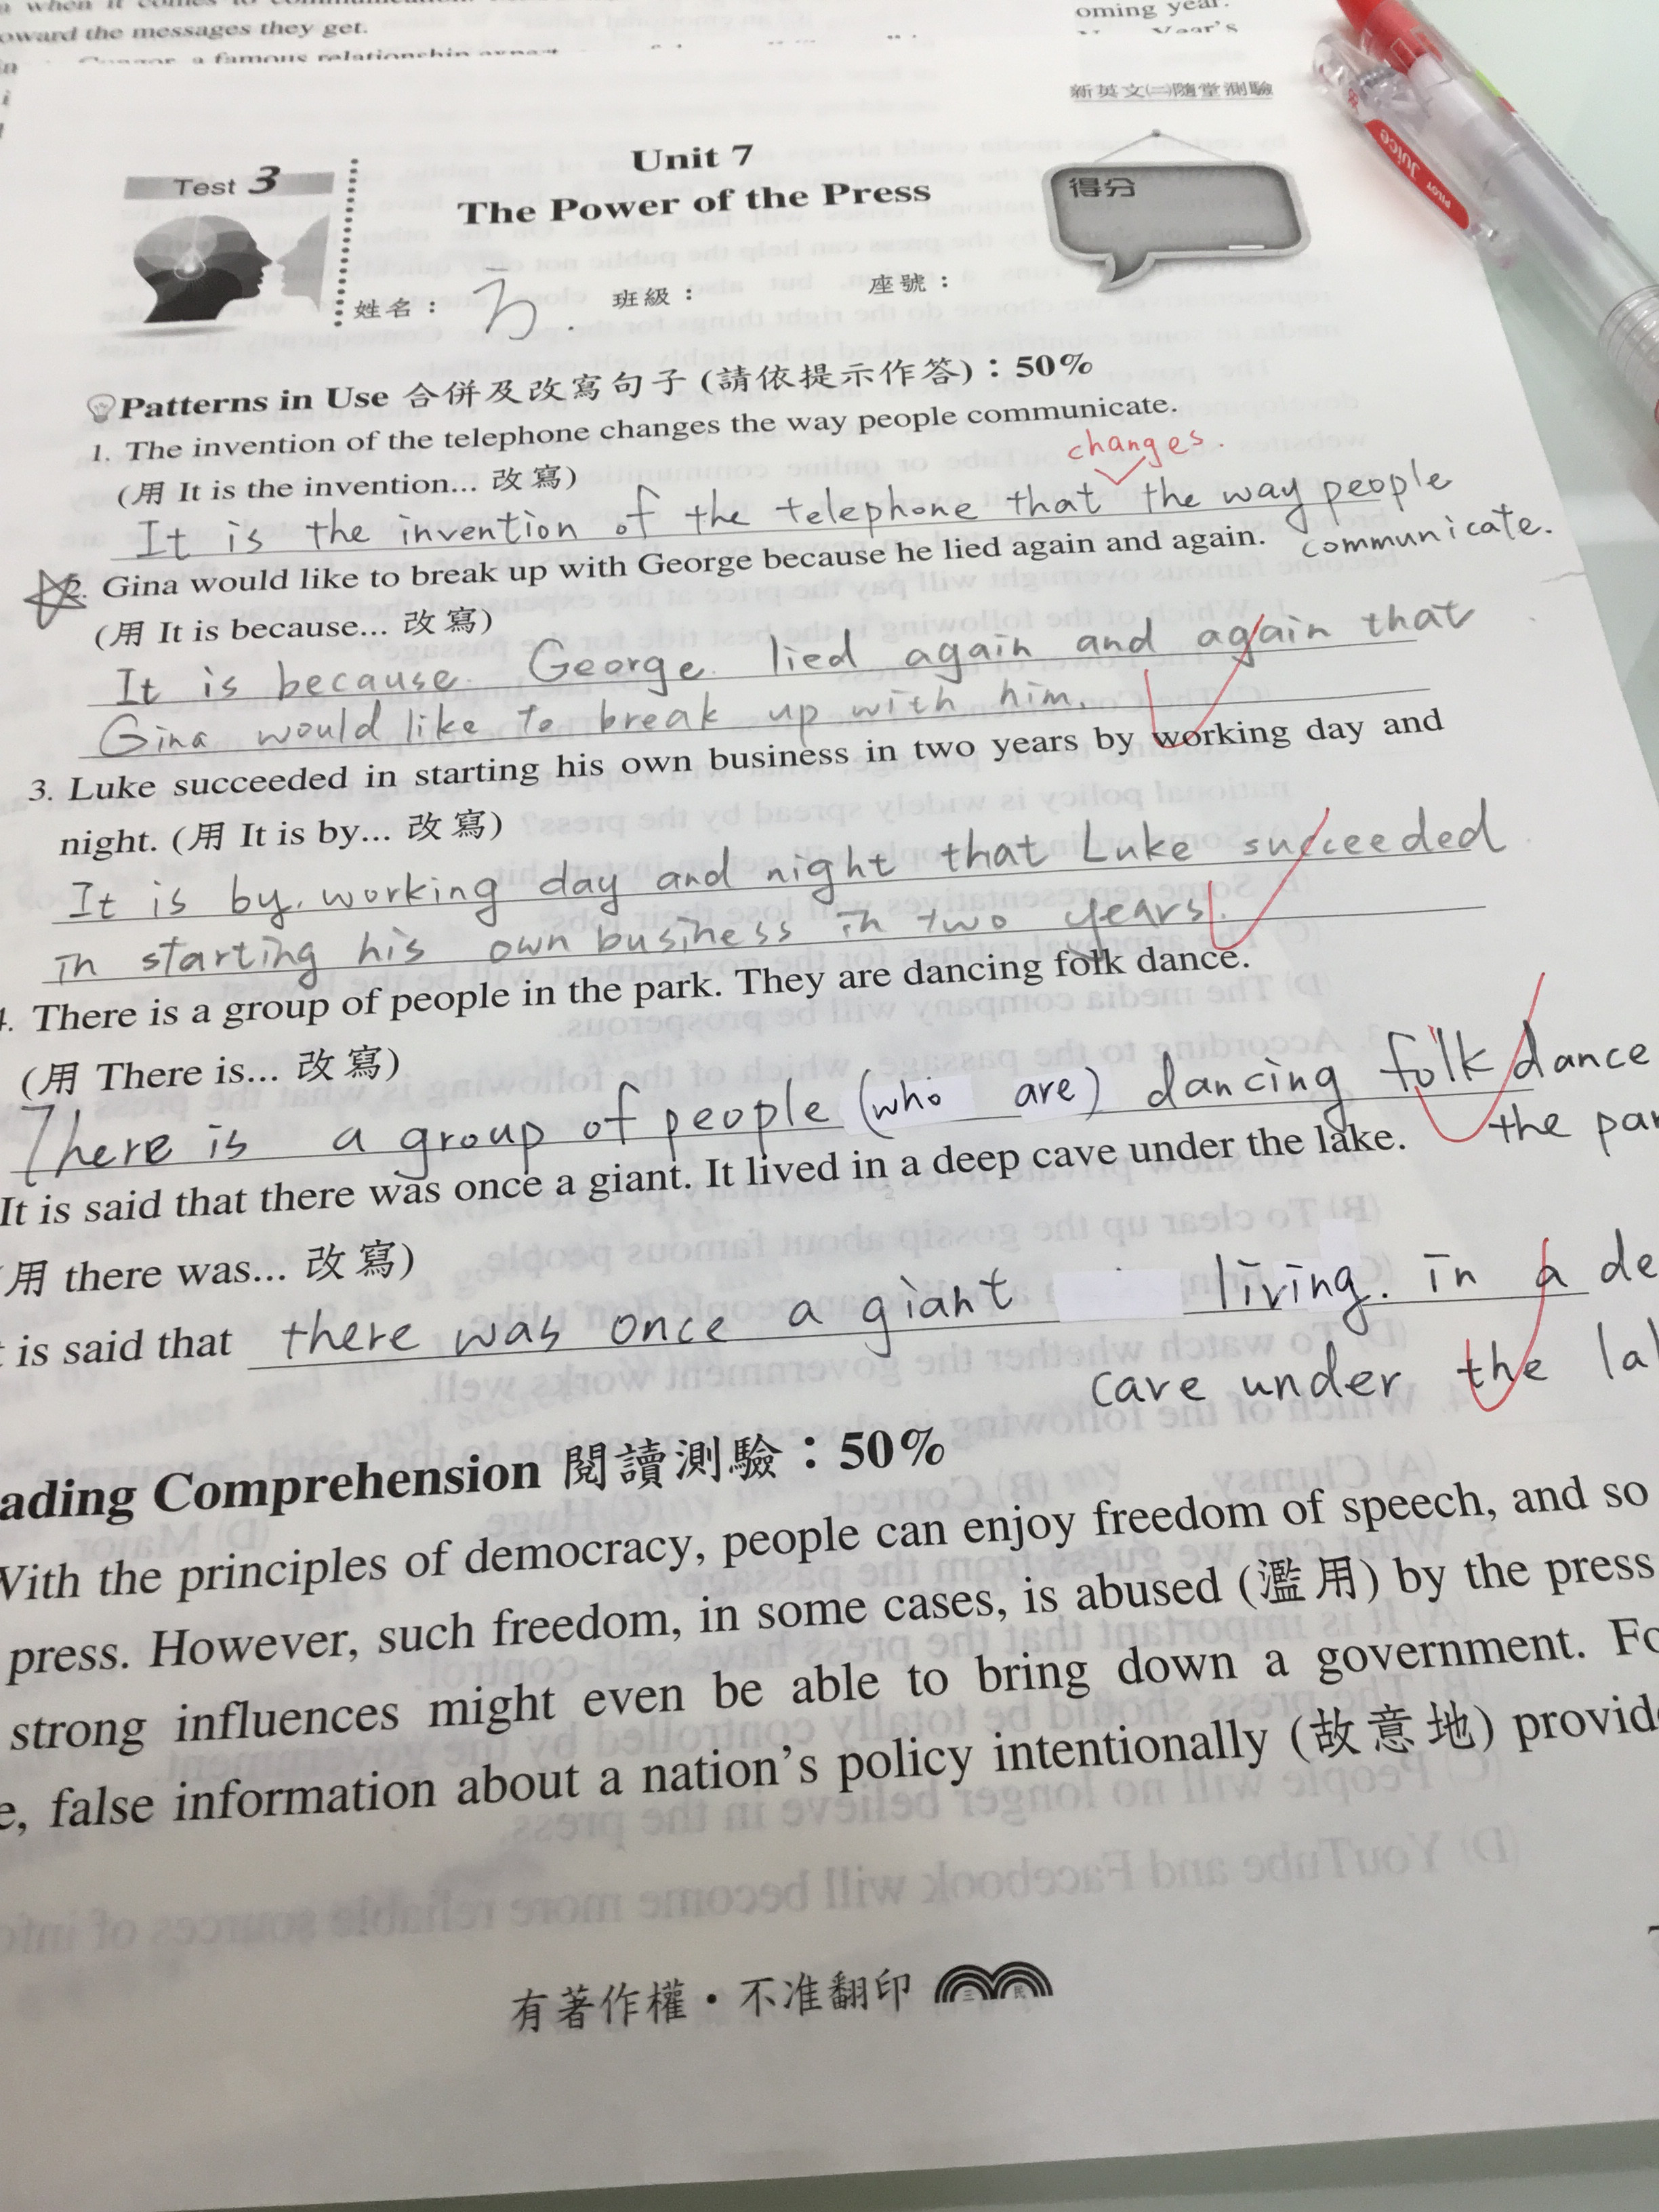 when it comes to communication.
toward the messages they get.
a famous relationship expert
oming year.
Year's
新英文(二)隨堂測驗
Test 3
Unit 7
The Power of the Press
得分
姓名： 班級： 座號：
Patterns in Use 合併及改寫句子 (請依提示作答)：50%
1. The invention of the telephone changes the way people communicate.
changes.
(用 It is the invention... 改寫)
It is the invention of the telephone that the way people
communicate.
2. Gina would like to break up with George because he lied again and again.
(用 It is because... 改寫)
It is because George lied again and again that
Gina would like to break up with him.
3. Luke succeeded in starting his own business in two years by working day and
night. (用 It is by... 改寫)
It is by working day and night that Luke succeeded
in starting his own business in two years.
4. There is a group of people in the park. They are dancing folk dance.
(用 There is... 改寫)
There is a group of people (who are) dancing folk dance
the par
It is said that there was once a giant. It lived in a deep cave under the lake.
(用 there was... 改寫)
t is said that there was once a giant living. in a de
cave under the la
ading Comprehension 閱讀測驗：50%
With the principles of democracy, people can enjoy freedom of speech, and so
press. However, such freedom, in some cases, is abused (濫用) by the press
strong influences might even be able to bring down a government. Fo
e, false information about a nation's policy intentionally (故意地) provide
有著作權・不准翻印 三民